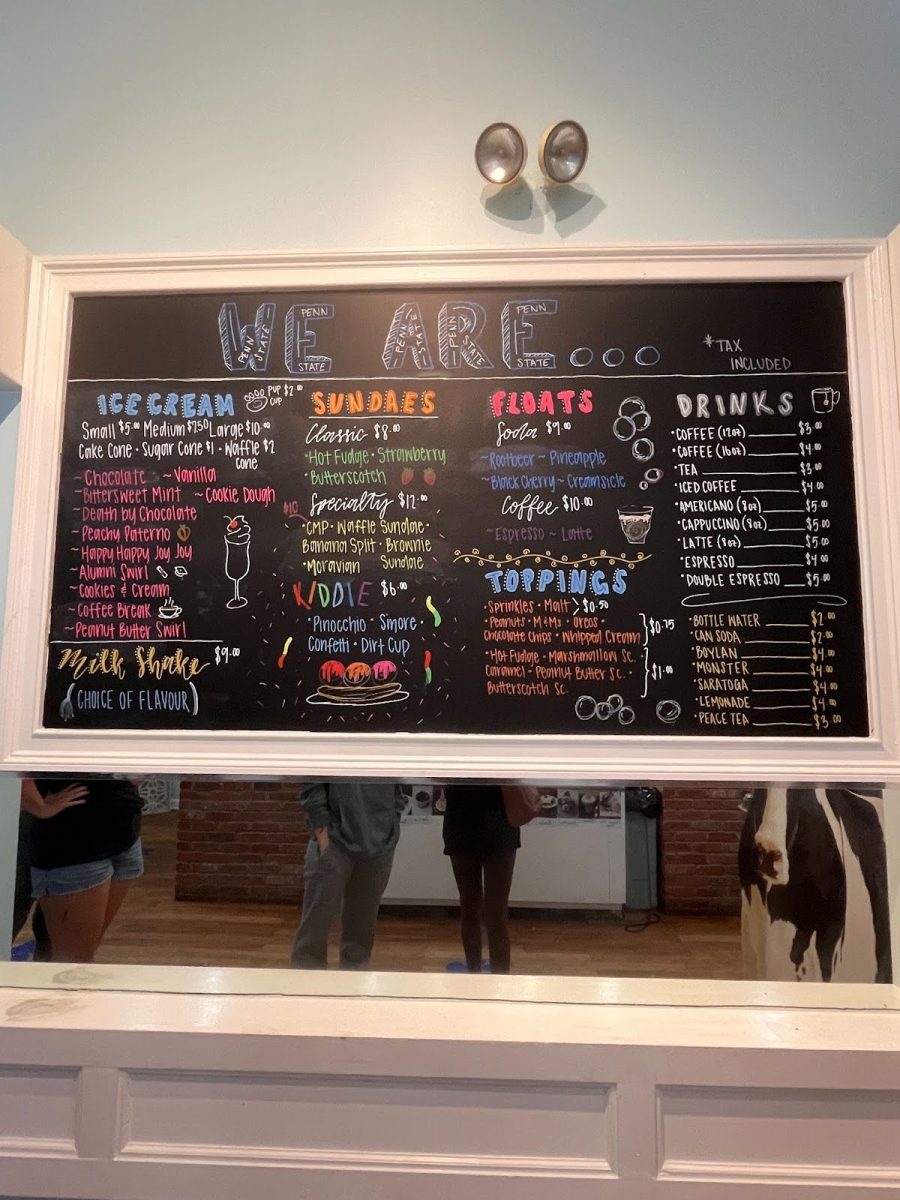 WE ARE...
PENN
STATE
PENN
STATE
PENN
STATE
PENN
STATE
PENN
STATE
*TAX
INCLUDED
ICE CREAM
PUP $2.00
CUP
Small $5.00 Medium $7.50 Large $10.00
Cake Cone · Sugar Cone $1 · Waffle $2
Cone
~Chocolate ~Vanilla
~Bittersweet Mint ~Cookie Dough
~Death by Chocolate
~Peachy Paterno
~Happy Happy Joy Joy
~Alumni Swirl
~Cookies & Cream
~Coffee Break
~Peanut Butter Swirl
Milk Shake $9.00
(CHOICE OF FLAVOUR)
SUNDAES
Classic $8.00
·Hot Fudge · Strawberry
·Butterscotch
$10
Specialty $12.00
·CMP · Waffle Sundae ·
Banana Split · Brownie
·Moravian Sundae
KIDDIE $6.00
·Pinocchio · Smore ·
Confetti · Dirt Cup
FLOATS
Soda $9.00
~Rootbeer ~ Pineapple
~Black Cherry ~ Creamsicle
Coffee $10.00
~Espresso ~ Latte
TOPPINGS
·Sprinkles · Malt > $0.50
·Peanuts · M&Ms · Oreos ·
Chocolate Chips · Whipped Cream } $0.75
·Hot Fudge · Marshmallow Sc.
Caramel · Peanut Butter Sc. ·
Butterscotch Sc. } $1.00
DRINKS
·COFFEE (12oz) $3.00
·COFFEE (16oz) $4.00
·TEA $3.00
·ICED COFFEE $4.00
·AMERICANO (8oz) $5.00
·CAPPUCCINO (8oz) $5.00
·LATTE (8oz) $5.00
·ESPRESSO $4.00
·DOUBLE ESPRESSO $5.00
·BOTTLE WATER $2.00
·CAN SODA $2.00
·BOYLAN $4.00
·MONSTER $4.00
·SARATOGA $4.00
·LEMONADE $4.00
·PEACE TEA $3.00